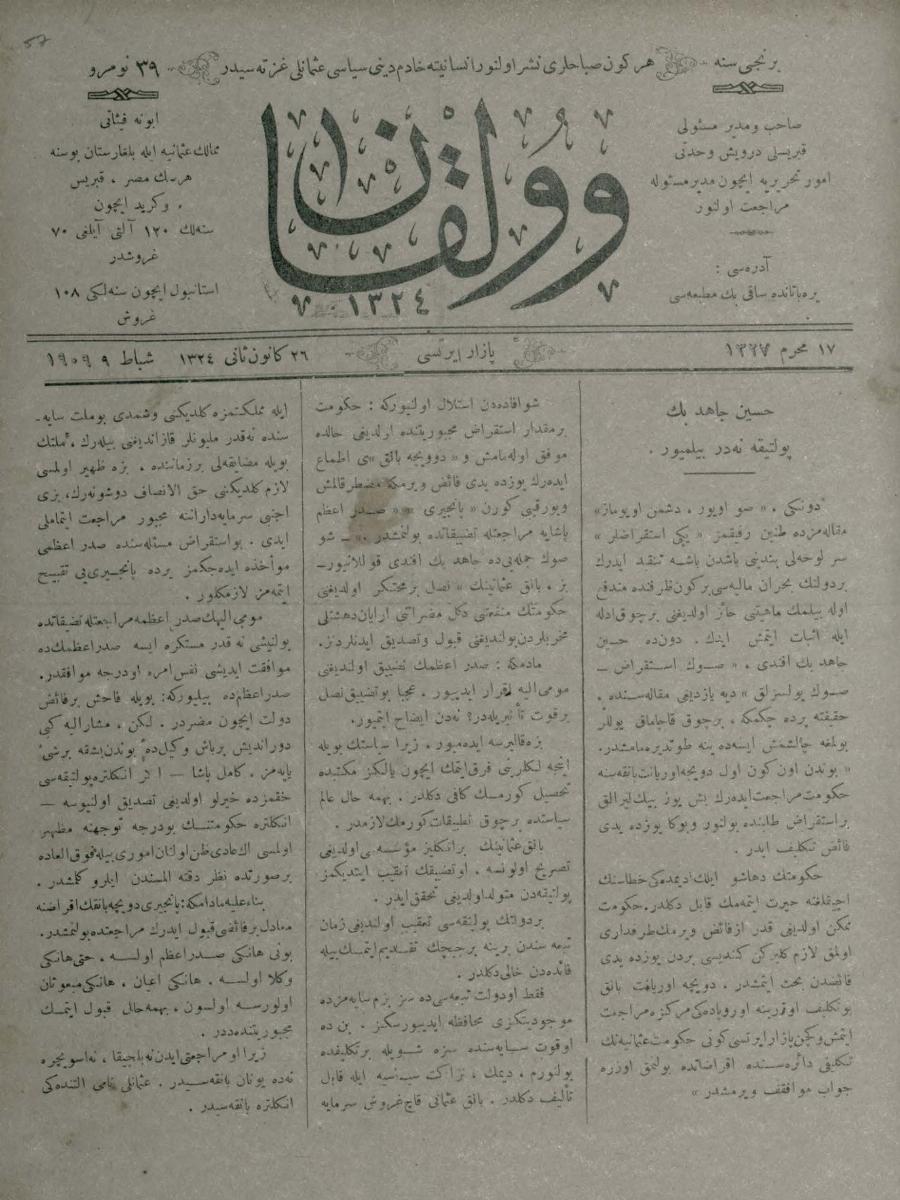 برنجی سنه
هر كون صباحلری نشر اولنور انسانیته خادم دینی سیاسی عثمانلی غزته سیدر
٣٩ نومرو
صاحب ومدیر مسئولی
قبریسلی درویش وحدتی
امور تحریریه ایچون مدیر مسئوله
مراجعت اولنور
آدره سی :
یره باتانده ساقی بك مطبعه سی
وولقان
١٣٢٤
ابونه فیئاتی
ممالك عثمانیه ایله بلغارستان بوسنه
هرسك مصر ، قبریس
، وكرید ایچون
سنه لك ١٢٠ آلتی آیلغی ٧٠
غروشدر
استانبول ایچون سنه لكی ١٠٨
غروش
١٧ محرم ١٣٢٧
پازار ایرتسی
٢٦ كانون ثانی ١٣٢٤
شباط ٩ ١٩٠٩
حسین جاهد بك
پولتیقه نه در بیلمیور .
دونكی ، « صو اویور ، دشمن اویوماز »
مقاله مزده طنین رفیقمز « یكی استقراضلر »
سر لوحه لی بندینی باشدن باشه تنقید ایدرك
بردولتك بحران مالیه سی بركون ظرفنده مندفع
اوله بیلمك ماهیتی حائز اولدیغنی برچوق ادله
ایله اثبات ایتمش ایدك . دون ده حسین
جاهد بك افندی ، « صوك استقراض –
صوك یولسزلق » دیه یازدیغی مقاله سنده ،
حقیقته پرده چكمكه ، برچوق قاچاماق یوللر
بولمغه چالشمش ایسه ده ینه طوتدیره مامشدر .
« بوندن اون كون اول دویچه اوریانت بانقه سنه
حكومت مراجعت ایده رك بش یوز بیك لیرالق
بر استقراض طلبنده بولنور وبوكا یوزده یدی
فائض تكلیف ایدر .
حكومتك دهاشو ایلك آدیمده كی خطاسنك
حیرت ایتمه مك قابل دكلدر . حكومت
ممكن اولدیغی قدر از فائض ویرمك طرفداری
اولمق لازم كلیركن كندیسی بردن یوزده یدی
فائضدن بحث ایتمشدر . دویچه اوریانت بانق
بو تكلیف اوزرینه اوروپاده كی مركزه مراجعت
ایتمش وكچن پازار ایرتسی كونی حكومت عثمانیه نك
تكلیفی دائره سنده اقراضاتده بولنمق اوزره
جواب موافقت ویرمشدر »
شو افاده دن استدلال اولنیوركه : حكومت
برمقدار استقراض مجبوریتنده اولدیغی حالده
موفق اوله مامش و « دویچه بانق » ی اطماع
ایده رك یوزده یدی فائض ویرمكه مضطر قالمش
وبو رقیبی كورن « پانجیری » « صدر اعظم
پاشایه مراجعتله تضییقاتده بولنمشدر » – شو
صوك جمله یی ده جاهد بك افندی قوللانیور –
بز ، بانق عثمانینك نصل برمحتكر اولدیغنی
حكومتك منفعتنی دكل مضراتنی آرایان دهشتلی
مخربلردن بولندیغنی قبول وتصدیق ایدنلردنز .
مادامكه : صدر اعظمك تضییق اولندیغنی
مومی الیه اقرار ایدییور . عجبا بو تضییق نصل
برقوت تأثیریله در ؟ نه دن ایضاح ایتمیور .
بزه قالیرسه ایده میور ، زیرا سیاستك بویله
اینجه لكلرینی فرق ایتمك ایچون یالكز مكتبده
تحصیل كورمك كافی دكلدر . بهمه حال عالم
سیاستده برچوق تطبیقات كورمك لازمدر .
بانق عثمانینك برانكلیز مؤسسه سی اولدیغی
تصریح اولونسه ، او تضییقك تعقیب ایتدیكمز
پولتیقه دن متولد اولدیغی تحقق ایدر .
بردولتك پولتیقه سی تعقیب اولندیغی زمان
تبعه سندن برینه برجیچك تقدیم ایتمك بیله
فائده دن خالی دكلدر .
فقط او دولت تبعه سی ده سز بزم سایه مزده
موجودیتكزی محافظه ایدییورسكز . بن ده
اوقوت سایه سنده سزه شویله برتكلیفده
بولنورم ، دیمك ، نزاكت سیاسیه ایله قابل
تألیف دكلدر . بانق عثمانی قاچ غروش سرمایه
ایله مملكتمزه كلدیكنی وشمدی بو ملت سایه -
سنده نه قدر ملیونلر قازاندیغنی بیله رك ، ملتك
بویله مضایقه لی برزماننده ، بزه ظهیر اولمسی
لازم كلدیكنی حق الانصاف دوشونه رك ، بزی
اجنبی سرمایه دارانه مجبور مراجعت ایتماملی
ایدی . بو استقراض مسئله سنده صدر اعظمی
مؤاخذه ایده جكمز یرده پانجیری یی تقبیح
ایتمه مز لازمكدور .
مومی الیهك صدر اعظمه مراجعتله تضییقاتده
بولنیشی نه قدر مستكره ایسه صدر اعظمك ده
موافقت ایدیشی نفس امره اودرجه موافقدر .
صدر اعظم ده بیلیوركه : بویله فاحش برفائض
دولت ایچون مضردر . لكن ، مشار الیه كبی
دور اندیش برباش وكیل ده بوندن بشقه برشی
یاپه مز . كامل پاشا – اكر انكلتره پولتیقه سی
حقمزده خیرلو اولدیغی تصدیق اولنیوسه –
انكلتره حكومتنك بودرجه توجهنه مظهر
اولمسی اك عادی ظن اولنان اموری بیله فوق العاده
برصورتده نظر دقته المسندن ایلرو كلمشدر .
بناء علیه مادامكه : پانجیری دویچه بانقك اقراضنه
معادل برفائضی قبول ایدرك مراجعتده بولنمشدر .
بونی هانكی صدر اعظم اولسه ، حتی هانكی
وكلا اولسه . هانكی اعیان . هانكی مبعوثان
اولورسه اولسون ، بهمه حال قبول ایتمك
مجبوریتنده در .
زیرا او مراجعتی ایدن نه بلجیقا ، نه اسویچره
نه ده یونان بانقه سیدر . عثمانلی نامی التنده كی
انكلتره بانقه سیدر .